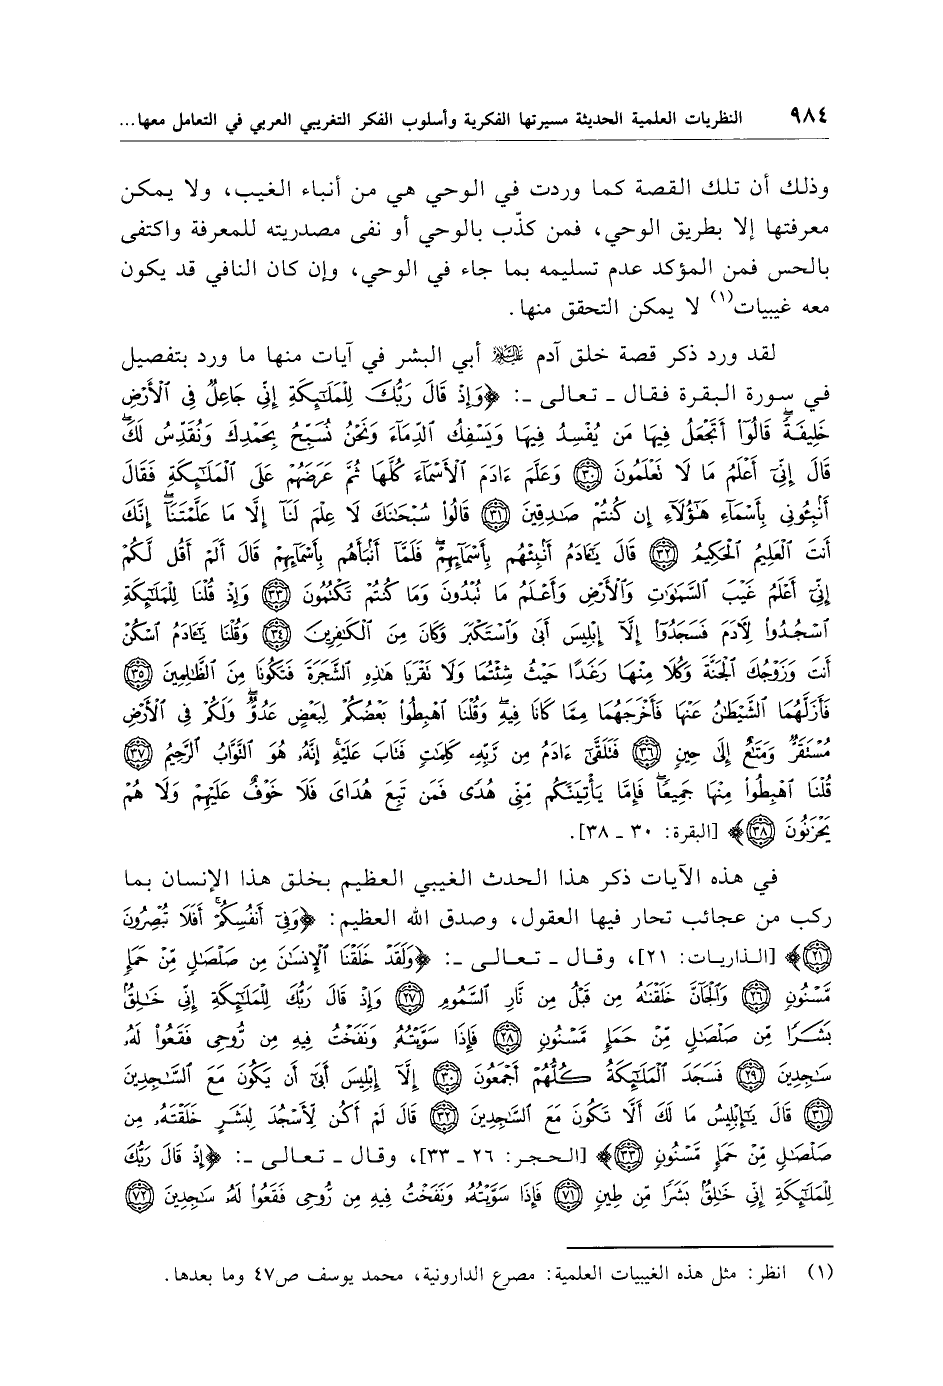 ٩٨٤ النظريات العلمية الحديثة مسيرتها الفكرية وأسلوب الفكر التغريبي العربي في التعامل معها...
وذلك أن تلك القصة كما وردت في الوحي هي من أنباء الغيب، ولا يمكن
معرفتها إلا بطريق الوحي، فمن كذّب بالوحي أو نفى مصدريته للمعرفة واكتفى
بالحس فمن المؤكد عدم تسليمه بما جاء في الوحي، وإن كان النافي قد يكون
معه غيبيات(١) لا يمكن التحقق منها.
لقد ورد ذكر قصة خلق آدم عليه السلام أبي البشر في آيات منها ما ورد بتفصيل
في سورة البقرة فقال ـ تعالى ـ: ﴿وَإِذْ قَالَ رَبُّكَ لِلْمَلَٰٓئِكَةِ إِنِّي جَاعِلٌ فِي ٱلْأَرْضِ
خَلِيفَةًۖ قَالُوٓا۟ أَتَجْعَلُ فِيهَا مَن يُفْسِدُ فِيهَا وَيَسْفِكُ ٱلدِّمَآءَ وَنَحْنُ نُسَبِّحُ بِحَمْدِكَ وَنُقَدِّسُ لَكَۖ
قَالَ إِنِّيٓ أَعْلَمُ مَا لَا تَعْلَمُونَ ﴿٣٠﴾ وَعَلَّمَ ءَادَمَ ٱلْأَسْمَآءَ كُلَّهَا ثُمَّ عَرَضَهُمْ عَلَى ٱلْمَلَٰٓئِكَةِ فَقَالَ
أَنۢبِـُٔونِي بِأَسْمَآءِ هَٰٓؤُلَآءِ إِن كُنتُمْ صَٰدِقِينَ ﴿٣١﴾ قَالُوا۟ سُبْحَٰنَكَ لَا عِلْمَ لَنَآ إِلَّا مَا عَلَّمْتَنَآۖ إِنَّكَ
أَنتَ ٱلْعَلِيمُ ٱلْحَكِيمُ ﴿٣٢﴾ قَالَ يَٰٓـَٔادَمُ أَنۢبِئْهُم بِأَسْمَآئِهِمْۖ فَلَمَّآ أَنۢبَأَهُم بِأَسْمَآئِهِمْ قَالَ أَلَمْ أَقُل لَّكُمْ
إِنِّيٓ أَعْلَمُ غَيْبَ ٱلسَّمَٰوَٰتِ وَٱلْأَرْضِ وَأَعْلَمُ مَا تُبْدُونَ وَمَا كُنتُمْ تَكْتُمُونَ ﴿٣٣﴾ وَإِذْ قُلْنَا لِلْمَلَٰٓئِكَةِ
ٱسْجُدُوا۟ لِـَٔادَمَ فَسَجَدُوٓا۟ إِلَّآ إِبْلِيسَ أَبَىٰ وَٱسْتَكْبَرَ وَكَانَ مِنَ ٱلْكَٰفِرِينَ ﴿٣٤﴾ وَقُلْنَا يَٰٓـَٔادَمُ ٱسْكُنْ
أَنتَ وَزَوْجُكَ ٱلْجَنَّةَ وَكُلَا مِنْهَا رَغَدًا حَيْثُ شِئْتُمَا وَلَا تَقْرَبَا هَٰذِهِ ٱلشَّجَرَةَ فَتَكُونَا مِنَ ٱلظَّٰلِمِينَ ﴿٣٥﴾
فَأَزَلَّهُمَا ٱلشَّيْطَٰنُ عَنْهَا فَأَخْرَجَهُمَا مِمَّا كَانَا فِيهِۖ وَقُلْنَا ٱهْبِطُوا۟ بَعْضُكُمْ لِبَعْضٍ عَدُوٌّۖ وَلَكُمْ فِي ٱلْأَرْضِ
مُسْتَقَرٌّ وَمَتَٰعٌ إِلَىٰ حِينٍ ﴿٣٦﴾ فَتَلَقَّىٰٓ ءَادَمُ مِن رَّبِّهِۦ كَلِمَٰتٍ فَتَابَ عَلَيْهِۚ إِنَّهُۥ هُوَ ٱلتَّوَّابُ ٱلرَّحِيمُ ﴿٣٧﴾
قُلْنَا ٱهْبِطُوا۟ مِنْهَا جَمِيعًاۖ فَإِمَّا يَأْتِيَنَّكُم مِّنِّي هُدًى فَمَن تَبِعَ هُدَايَ فَلَا خَوْفٌ عَلَيْهِمْ وَلَا هُمْ
يَحْزَنُونَ ﴿٣٨﴾﴾ [البقرة: ٣٠ ـ ٣٨].
في هذه الآيات ذكر هذا الحدث الغيبي العظيم بخلق هذا الإنسان بما
ركب من عجائب تحار فيها العقول، وصدق الله العظيم: ﴿وَفِيٓ أَنفُسِكُمْۚ أَفَلَا تُبْصِرُونَ
﴿٢١﴾﴾ [الذاريات: ٢١]، وقال ـ تعالى ـ: ﴿وَلَقَدْ خَلَقْنَا ٱلْإِنسَٰنَ مِن صَلْصَٰلٍ مِّنْ حَمَإٍ
مَّسْنُونٍ ﴿٢٦﴾ وَٱلْجَآنَّ خَلَقْنَٰهُ مِن قَبْلُ مِن نَّارِ ٱلسَّمُومِ ﴿٢٧﴾ وَإِذْ قَالَ رَبُّكَ لِلْمَلَٰٓئِكَةِ إِنِّي خَٰلِقٌۢ
بَشَرًا مِّن صَلْصَٰلٍ مِّنْ حَمَإٍ مَّسْنُونٍ ﴿٢٨﴾ فَإِذَا سَوَّيْتُهُۥ وَنَفَخْتُ فِيهِ مِن رُّوحِي فَقَعُوا۟ لَهُۥ
سَٰجِدِينَ ﴿٢٩﴾ فَسَجَدَ ٱلْمَلَٰٓئِكَةُ كُلُّهُمْ أَجْمَعُونَ ﴿٣٠﴾ إِلَّآ إِبْلِيسَ أَبَىٰٓ أَن يَكُونَ مَعَ ٱلسَّٰجِدِينَ
﴿٣١﴾ قَالَ يَٰٓإِبْلِيسُ مَا لَكَ أَلَّا تَكُونَ مَعَ ٱلسَّٰجِدِينَ ﴿٣٢﴾ قَالَ لَمْ أَكُن لِّأَسْجُدَ لِبَشَرٍ خَلَقْتَهُۥ مِن
صَلْصَٰلٍ مِّنْ حَمَإٍ مَّسْنُونٍ ﴿٣٣﴾﴾ [الحجر: ٢٦ ـ ٣٣]، وقال ـ تعالى ـ: ﴿إِذْ قَالَ رَبُّكَ
لِلْمَلَٰٓئِكَةِ إِنِّي خَٰلِقٌۢ بَشَرًا مِّن طِينٍ ﴿٧١﴾ فَإِذَا سَوَّيْتُهُۥ وَنَفَخْتُ فِيهِ مِن رُّوحِي فَقَعُوا۟ لَهُۥ سَٰجِدِينَ ﴿٧٢﴾
(١) انظر: مثل هذه الغيبيات العلمية: مصرع الدارونية، محمد يوسف ص٤٧ وما بعدها.